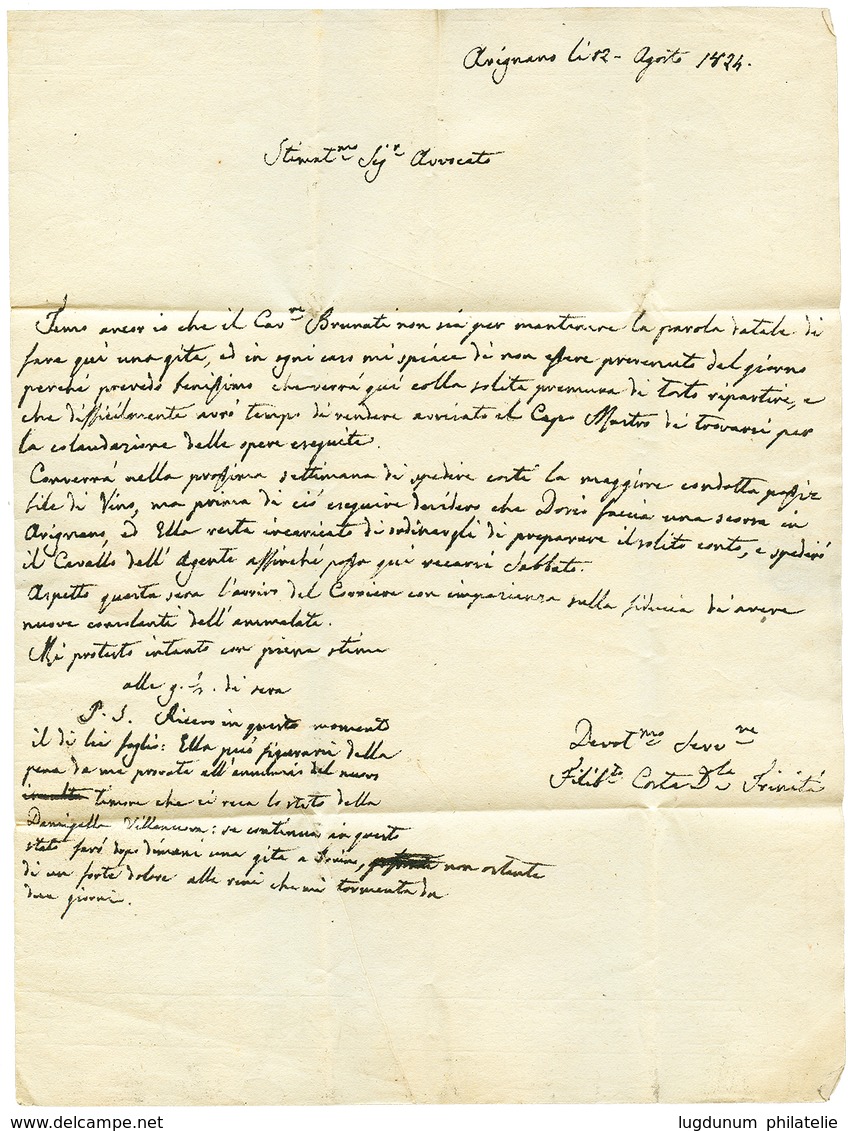 Arignano li 12 - Agosto 1824.
Stimat.mo Sig.r Avvocato
Temo ancor io che il Cav.re Brunati non sia per mantenere la parola datale di
fare quì una gita, ed in ogni caso mi spiace di non essere prevenuto del giorno
perchè prevedo benissimo che verrà quì colla solita premura di tosto ripartire, e
che difficilmente avrò tempo di rendere avvisato il Capo Mastro di trovarsi per
la colaudazione delle opere eseguite.
Converrà nella prossima settimana di spedire costì la maggiore condotta possi=
bile di Vino, ma prima di ciò eseguire desidero che Dorio faccia una scorsa in
Arignano, ed Ella resta incaricato di ordinargli di preparare il solito conto, e spedirò
il Cavallo dell' Agente affinchè possa quì recarsi Sabbato.
Aspetto questa sera l'arrivo del Corriere con impazienza sulla fiducia di avere
nuove consolanti dell' ammalata.
Mi protesto intanto con piena stima
alle 9. 1/2. di sera
P. S. Ricevo in questo momento
il di lei foglio: Ella può figurarsi della
pena da me provata all' del nuovo
timore che ci reca lo stato della
Damigella Villanova: se continua in questo
stato farò dopo dimani una gita a Torino, non ostante
di un forte dolore alle reni che mi tormenta da
due giorni.
Devot.mo Serv.re
Filib.to Costa D.la Trinità
delcampe.net
lugdunum philatelie